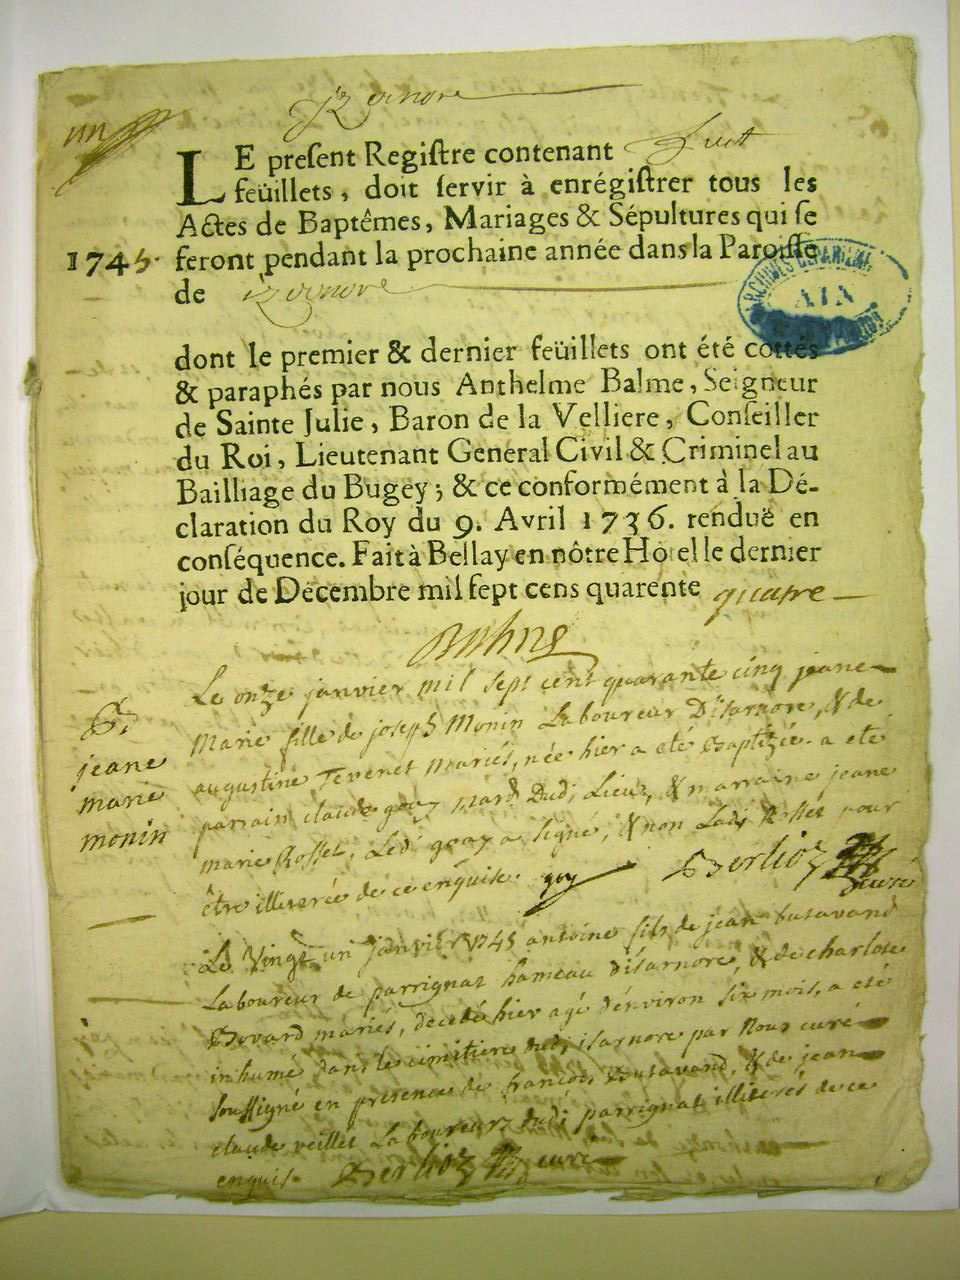 un
Izernore
LE preſent Regiſtre contenant huit
feüillets, doit ſervir à enrégiſtrer tous les
Actes de Baptêmes, Mariages & Sépultures qui ſe
1745. feront pendant la prochaine année dans la Paroiſſe
de Izernore
AIX
dont le premier & dernier feüillets ont été cottés
& paraphés par nous Anthelme Balme, Seigneur
de Sainte Julie, Baron de la Velliere, Conſeiller
du Roi, Lieutenant General Civil & Criminel au
Bailliage du Bugey; & ce conformément à la Dé-
claration du Roy du 9. Avril 1736. renduë en
conſéquence. Fait à Bellay en nôtre Hôtel le dernier
jour de Décembre mil ſept cens quarente quatre
Le onze janvier mil sept cent quarante cinq jeane
Marie fille de joseph Monin Laboureur Disarnore, & de
augustine Tevenet mariés, née hier a eté Baptizée. a eté
parrain claude goy dud; Lieu, & marraine jeane
marie Rosset, Led; goy a signé, & non Lad; Rosset pour
être illiterée de ce enquise. goy Berlioz curé
B;
jeane
marie
monin
Le Vingt un janvier 1745 antoine fils de jean butavand
Laboureur de parrignat hameau disarnore, & de charlote
Bovard mariés, decedé hier agé d'environ six mois, a eté
inhumé dans le cimitiere dud; isarnore par Nous curé
soussigné en presence de françois butavand, & de jean
claude veillet Laboureurs dud; parrignat illiterés de ce
enquis. Berlioz curé